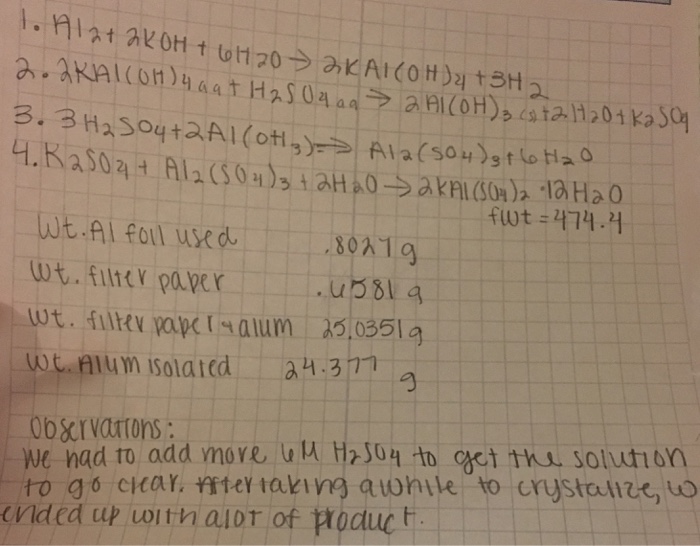 1. Al2+ 2KOH + 6H2O → 2KAl(OH)4 + 3H2
2. 2KAl(OH)4aq + H2SO4aq → 2Al(OH)3(s)+2H2O+K2SO4
3. 3H2SO4+2Al(OH3)=> Al2(SO4)3+6H2O
4. K2SO4 + Al2(SO4)3 + 2H2O → 2KAl(SO4)2 · 12H2O
fwt = 474.4
Wt. Al foil used .8027 g
Wt. filter paper .6581 g
Wt. filter paper + alum 25.0351 g
Wt. Alum isolated 24.377 g
Observations:
We had to add more 6M H2SO4 to get the solution
to go clear. After taking awhile to crystalize, w
ended up with alot of product.